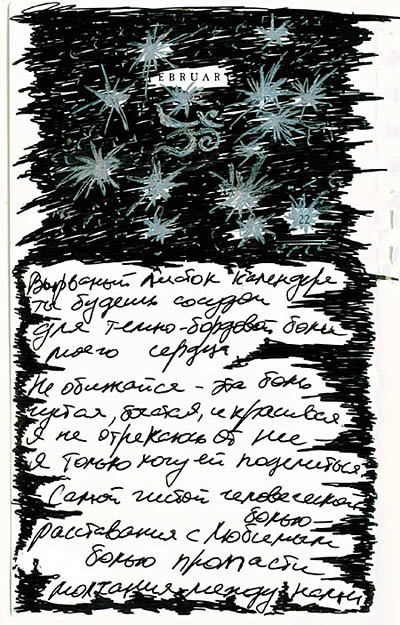 FEBRUARY
22
Вырваный листок календаря
ты будешь сосудом
для темно-бордовой боли
моего сердца.
Не обижайся - эта боль
густая, богатая, и красивая
я не отрекаюсь от нее
я только хочу ей поделиться
Самой чистой человеческой
болью-
расставания с любимым
болью пропасти
молчания между нами